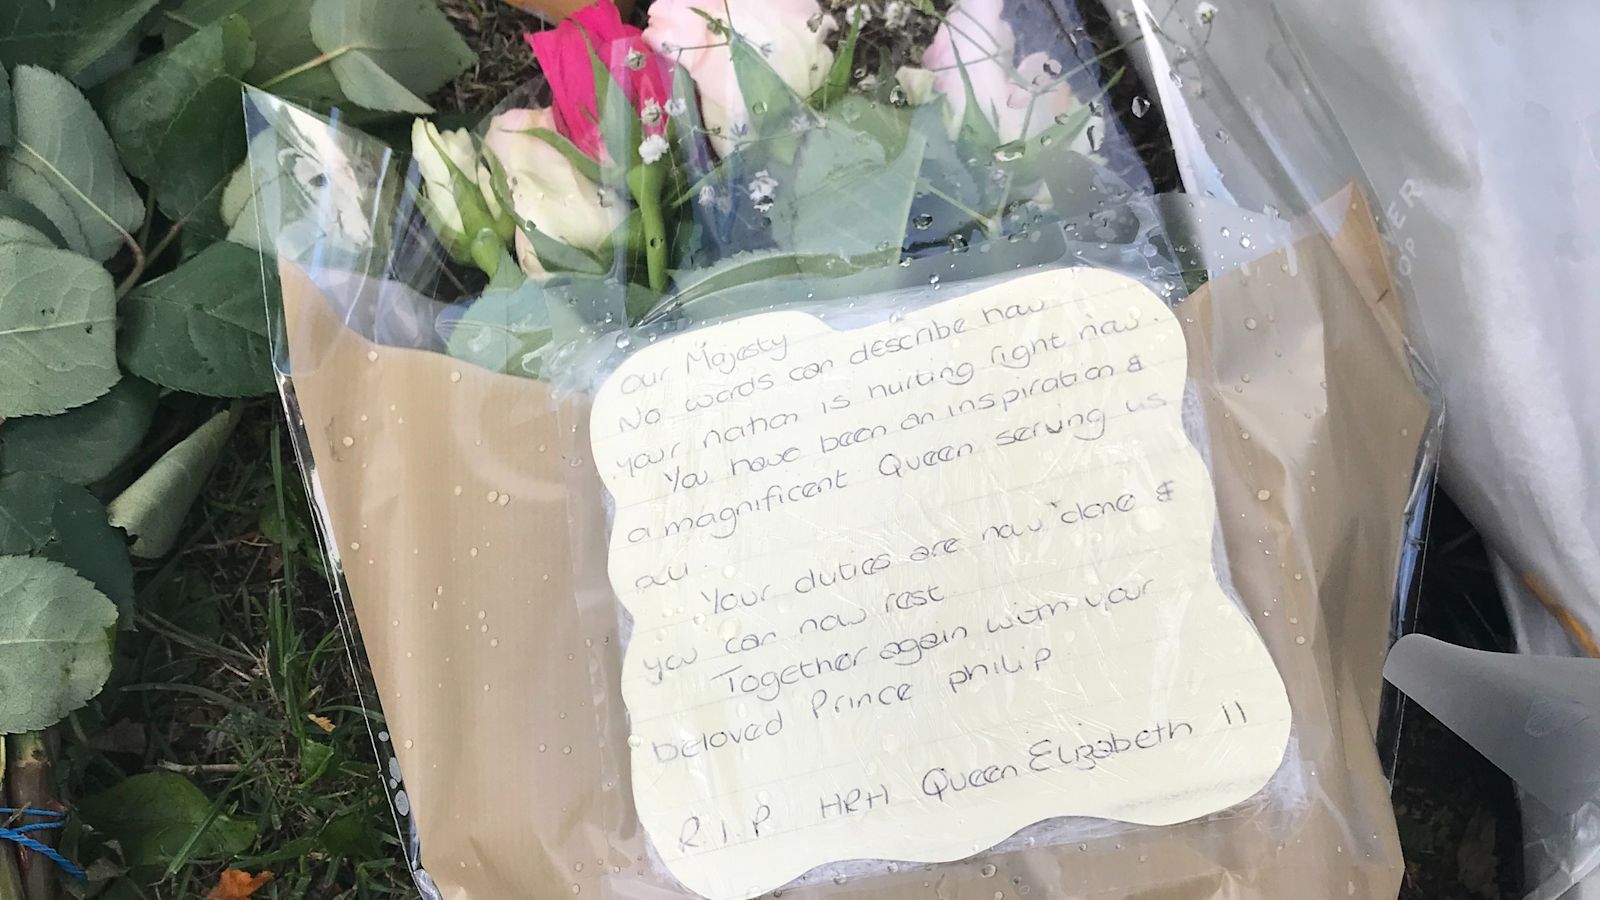 Our Majesty
No words can describe how
your nation is hurting right now.
You have been an inspiration &
a magnificent Queen serving us
all.
Your duties are now done &
you can now rest
Together again with your
beloved Prince philip.
R.I.P HRH Queen Elizabeth II